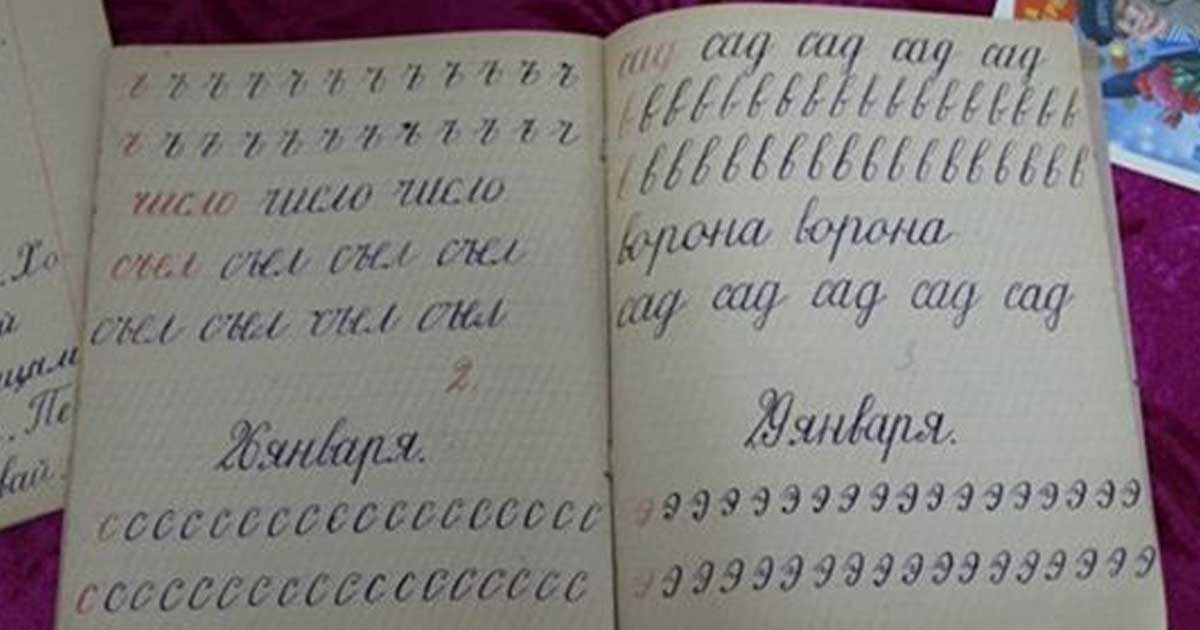 . Хо-
й
щам
. Пе
вай.
ъ ъ ъ ъ ъ ъ ъ ъ ъ ъ ъ ъ
ъ ъ ъ ъ ъ ъ ъ ъ ъ ъ ъ ъ
число число число
съел съел съел съел
съел съел съел съел
2.
26 января.
с с с с с с с с с с с с с с с с с с
с с с с с с с с с с с с с с с с с с
сад сад сад сад сад
в в в в в в в в в в в в в в в в в
в в в в в в в в в в в в в в в в в
ворона ворона
сад сад сад сад сад
3
29 января.
э э э э э э э э э э э э э э э э э
э э э э э э э э э э э э э э э э э э